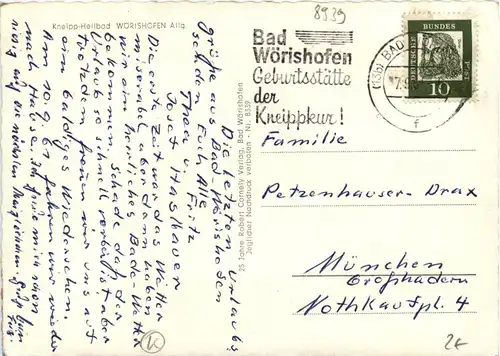 8939
Kneipp-Heilbad WÖRISHOFEN Allg.
Bad
Wörishofen
Geburtsstätte
der
Kneippkur!
(13b) BAD
f
DEUTSCHE BUNDESPOST
10
Die letzten Urlaubs
grüße aus Bad-Wörishofen
senden Euch Alle
u. Fritz
Josef Haslbauer
Die erste Zeit war das Wetter
miserabel aber dann haben
wir ein herrliches Bade-Wetter
bekommen. Schade daß der
Urlaub so schnell vorbei ist aber
trotzdem freuen wir uns auf
ein baldiges Wiedersehen.
Am 10.9.61 fahren wir wieder
nach Hause. Ich freue mich schon
riesig auf die nächsten
35 Jahre Robert Cornely Verlag, Bad Wörishofen
Jeglicher Nachdruck verboten - Nr. 8539
Familie
Petzenhauser-Drax
München
Großhadern
Nothkaufpl. 4
2€